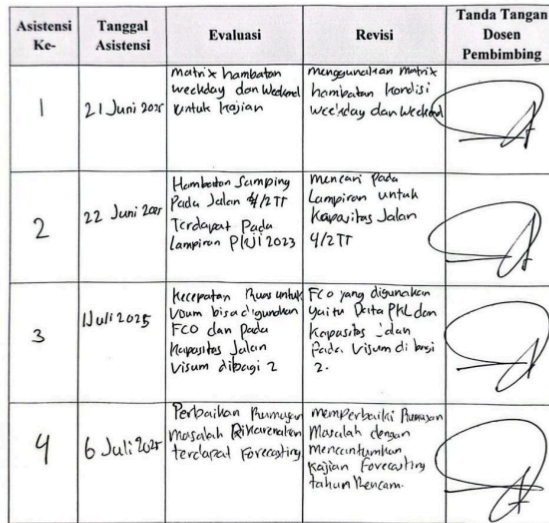 Asistensi Ke-
Tanggal Asistensi
Evaluasi
Revisi
Tanda Tangan Dosen Pembimbing
1
21 Juni 2025
matrix hambatan
weekday dan Weekend
untuk kajian
menggunakan matrix
hambatan kondisi
weekday dan Weekend
2
22 Juni 2025
Hambatan Samping
Pada Jalan 4/2 TT
Terdapat Pada
Lampiran PKJI 2023
mencari Pada
Lampiran untuk
Kapasitas Jalan
4/2 TT
3
1 Juli 2025
Kecepatan Ruas untuk
Visum bisa digunakan
FCO dan Pada
Kapasitas Jalan
Visum dibagi 2
FCO yang digunakan
yaitu Data PKL dan
Kapasitas Jalan
Pada Visum di bagi
2.
4
6 Juli 2025
Perbaikan Rumusan
masalah Dikarenakan
terdapat Forecasting
memperbaiki Rumusan
Masalah dengan
Mencantumkan
Kajian Forecasting
tahun Rencana.